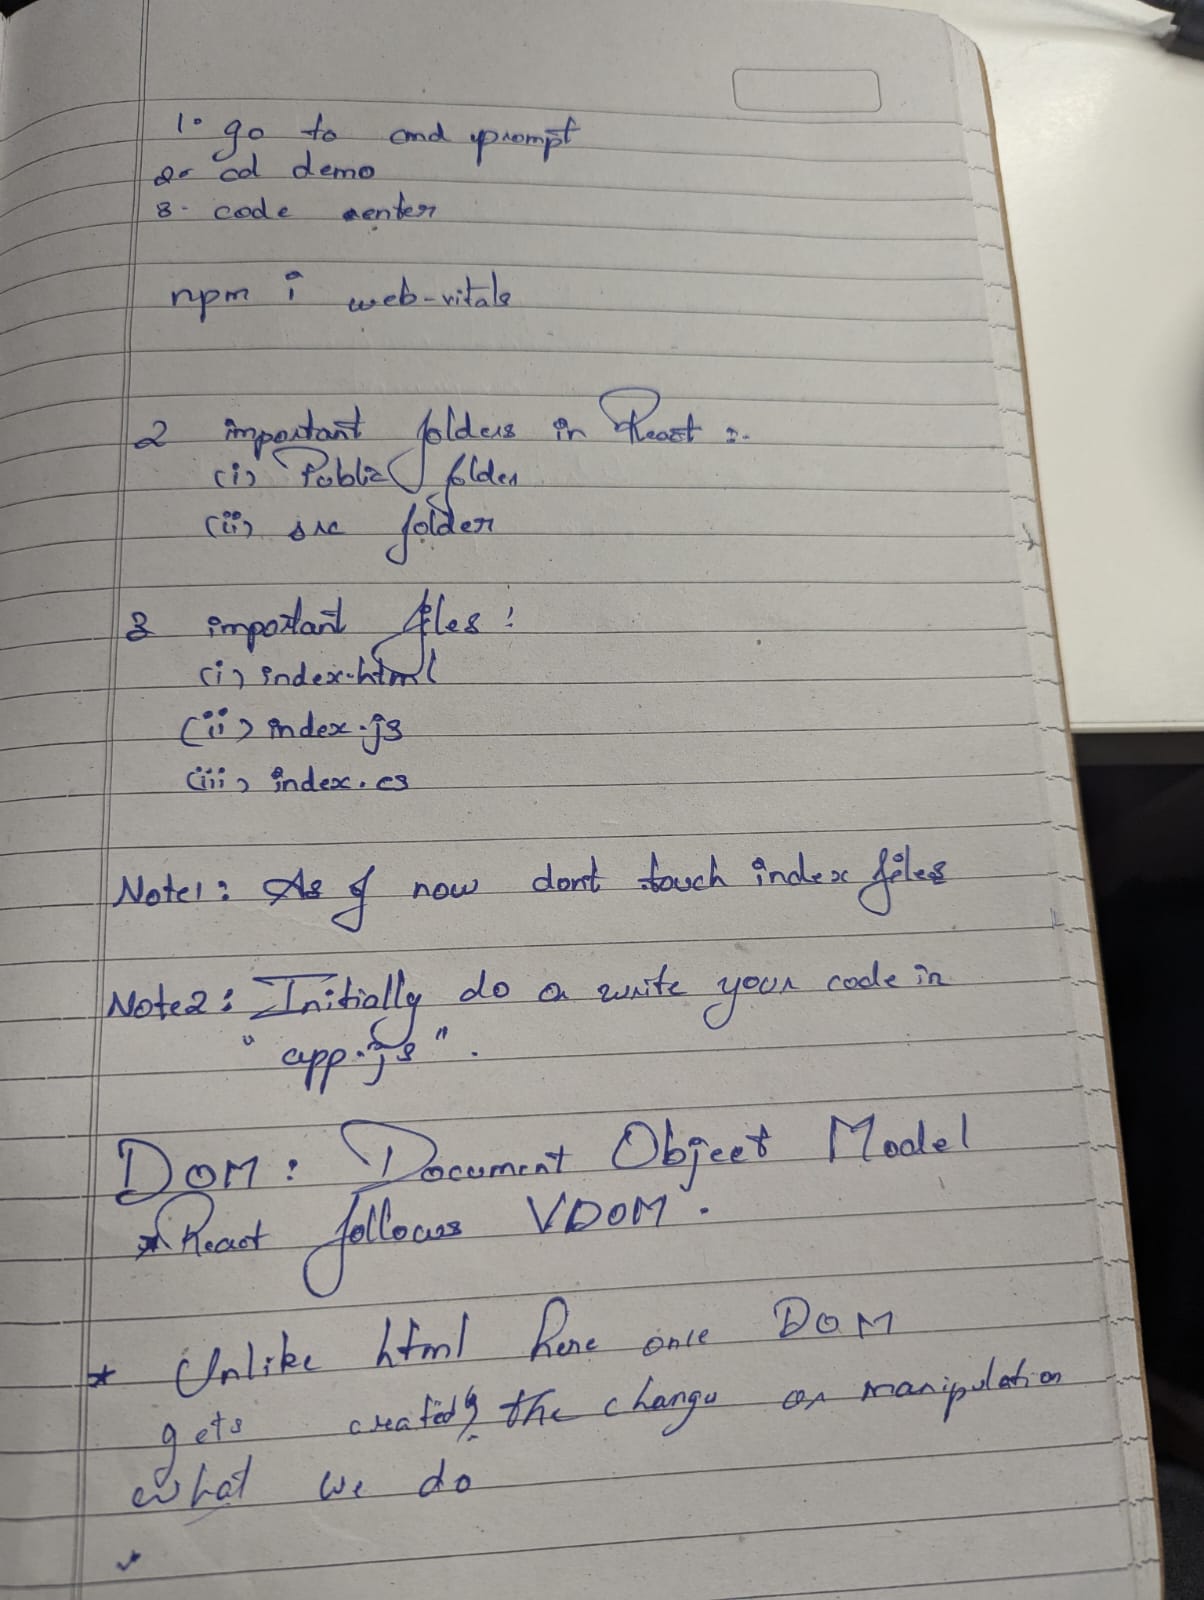 1. go to cmd prompt
2. cd demo
3. code enter
npm i web-vitals
2 important folders in React :-
(i) Public folder
(ii) src folder
3 important files :
(i) index.html
(ii) index.js
(iii) index.cs
Note1: As of now dont touch index files
Note2: Initially do or write your code in
"app.js".
DOM: Document Object Model
* React follows VDOM.
* Unlike html here once DOM
gets created, the change or manipulation
what we do